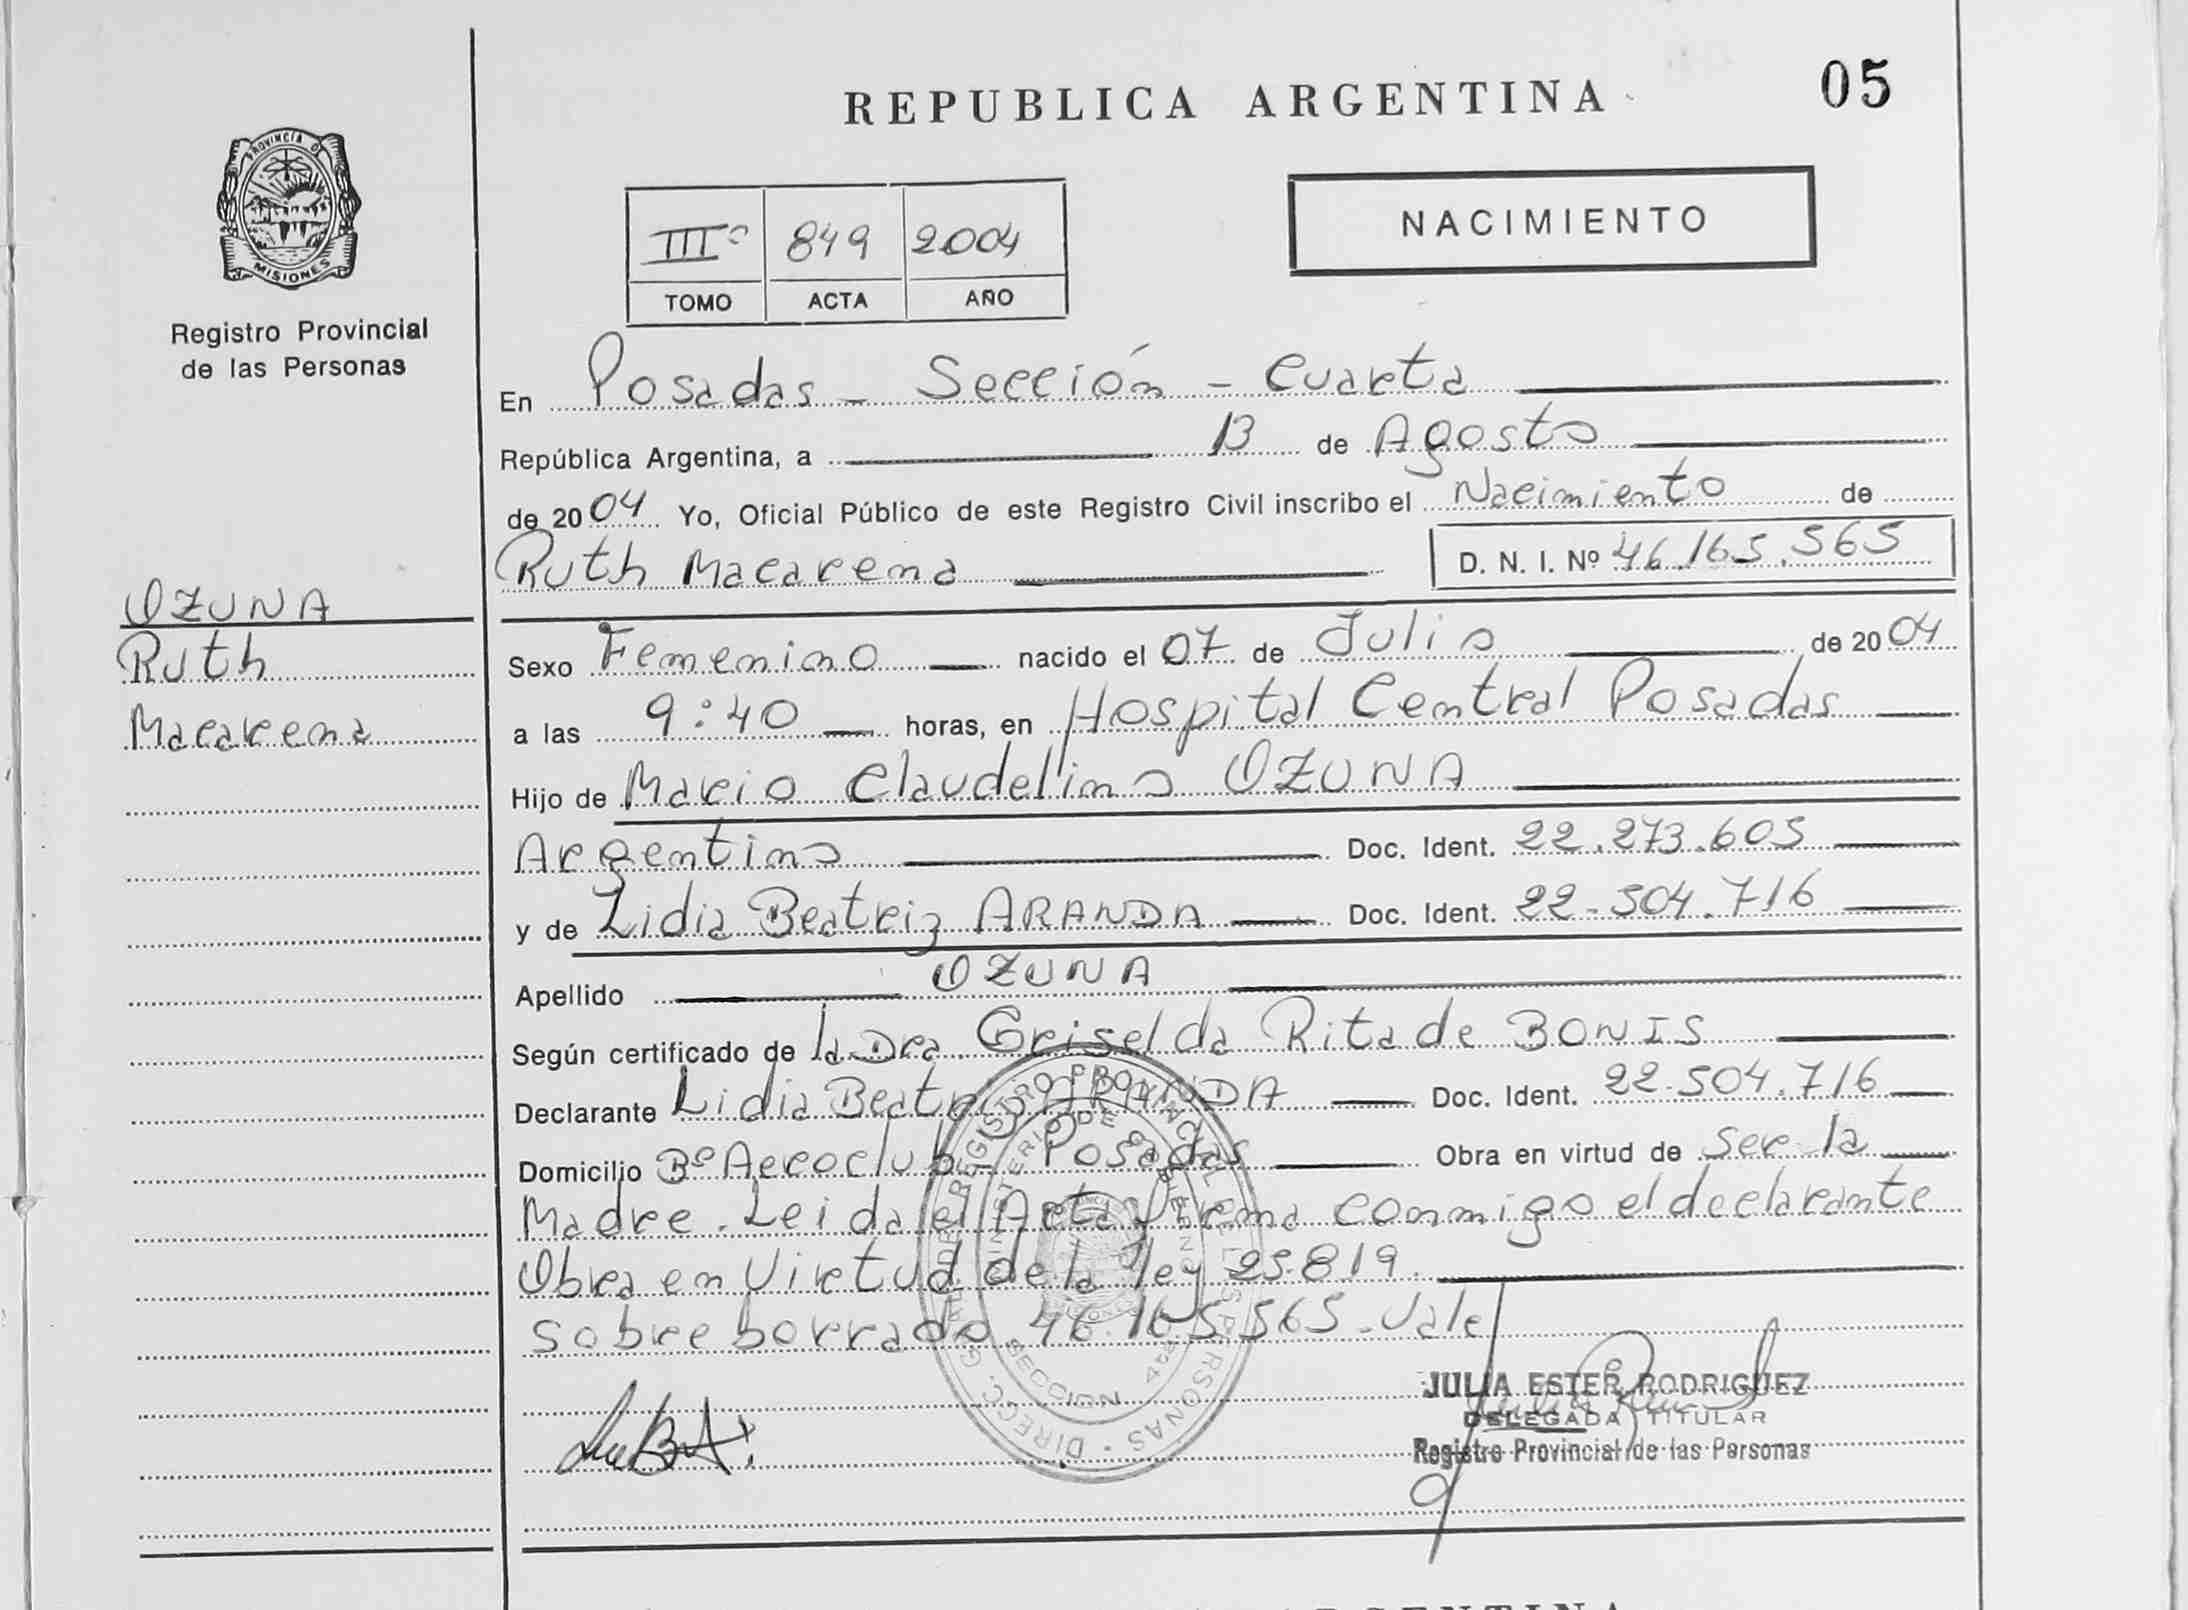 REPUBLICA ARGENTINA
05
PROVINCIA D
MISIONES
Registro Provincial
de las Personas
IIIº 849 2004
TOMO ACTA AÑO
NACIMIENTO
En Posadas - Sección - Cuarta
República Argentina, a 13 de Agosto
de 2004 Yo, Oficial Público de este Registro Civil inscribo el Nacimiento de
Ruth Macarena D. N. I. Nº 46.165.565
OZUNA
Ruth
Macarena
Sexo Femenino nacido el 07 de Julio de 2004
a las 9:40 horas, en Hospital Central Posadas
Hijo de Mario Claudelino OZUNA
Argentino Doc. Ident. 22.273.605
y de Lidia Beatriz ARANDA Doc. Ident. 22.504.716
Apellido OZUNA
Según certificado de la Dra. Griselda Rita de BONIS
Declarante Lidia Beatriz ARANDA Doc. Ident. 22.504.716
Domicilio Bº Aeroclub - Posadas Obra en virtud de ser la
Madre. Leida el Acta firma conmigo el declarante
Obra en Virtud de la ley 25.819.
Sobre borrado 46.165.565. Vale
JULIA ESTER RODRIGUEZ
DELEGADA TITULAR
Registro Provincial de las Personas
DIREC. GRAL. DE REGISTRO PROVINCIAL DE LAS PERSONAS
MINISTERIO DE GOBIERNO
SECCION 4ta